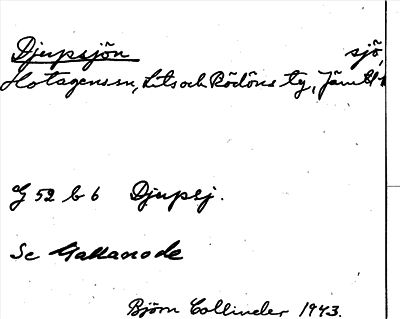 Djupsjön sjö,
Hotagens sn, Lits och Rödöns tg, Jämtl.
52 b 6 Djupsj.
Se
Björn Collinder 1943.